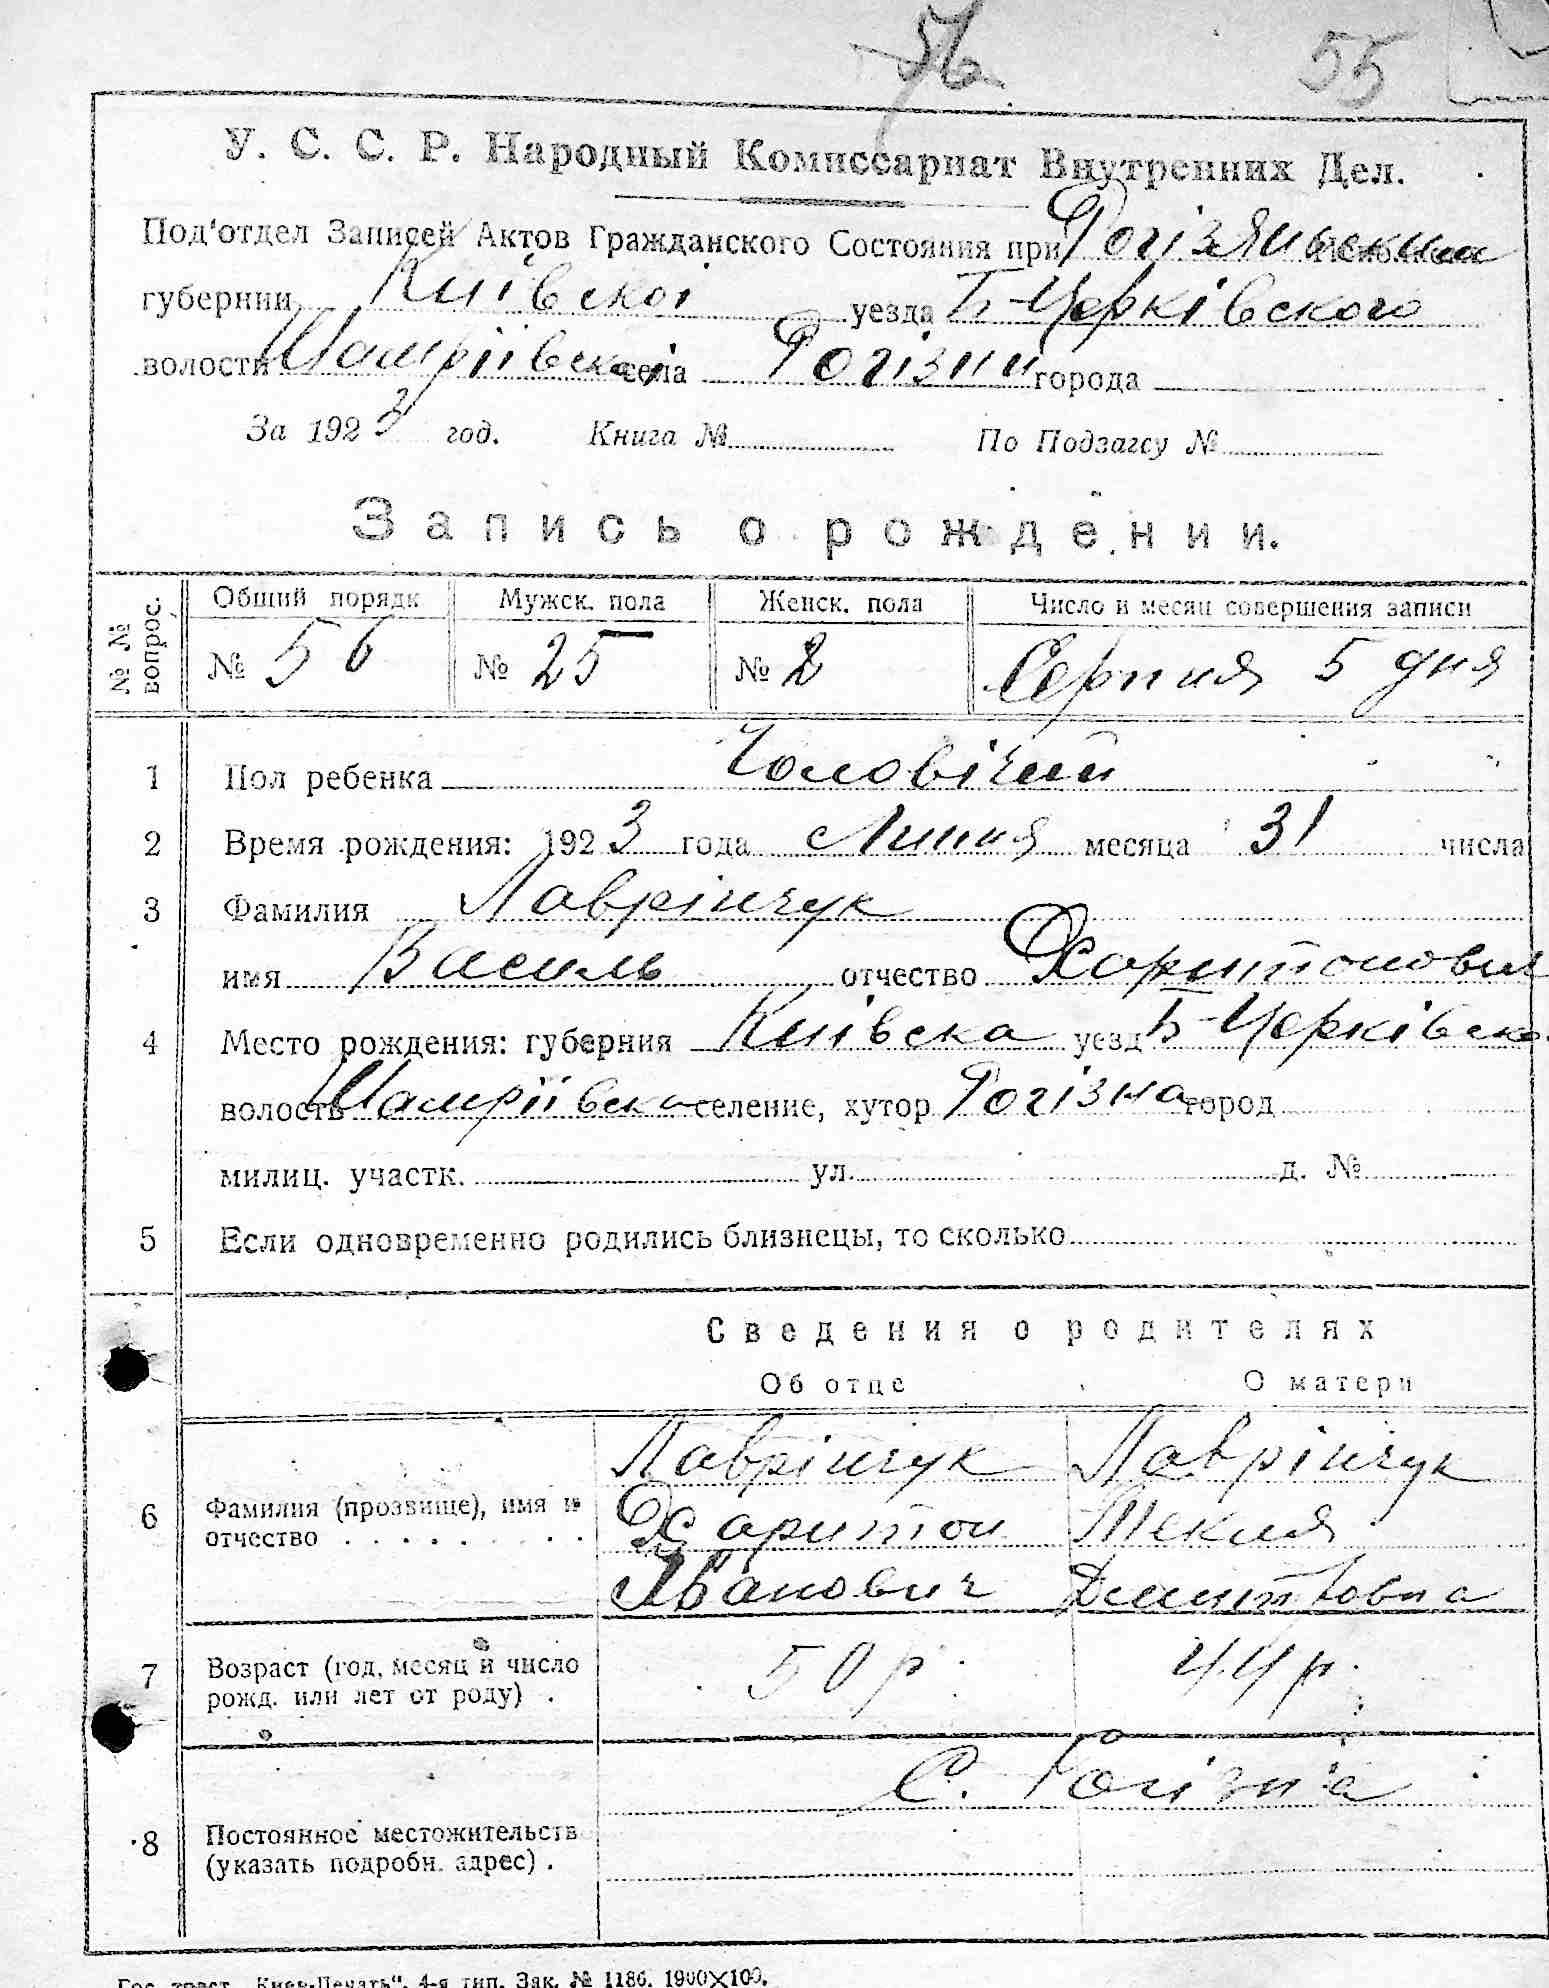 56 55
У. С. С. Р. Народный Комиссариат Внутренних Дел.
Под'отдел Записей Актов Гражданского Состояния при Рогізянським
губернии Київскої уезда Б-Церківского
волости Шамріївскої села Рогізни города
За 1923 год. Книга № По Подзагсу №
Запись о рождении.
№ № вопрос. Общий порядк Мужск. пола Женск. пола Число и месяц совершения записи
№ 56 № 25 № 2 Серпня 5 дня
1 Пол ребенка Чоловічий
2 Время рождения: 1923 года Липня месяца 31 числа
3 Фамилия Лаврінчук
имя Василь отчество Харитонович
4 Место рождения: губерния Київска уезд Б-Церківск
волость Шамріївска селение, хутор Рогізна город
милиц. участк. ул. д. №
5 Если одновременно родились близнецы, то сколько
Сведения о родителях
Об отце О матери
Лаврінчук Лаврінчук
6 Фамилия (прозвище), имя и отчество . . . . . . . . Харитон Текля
Іванович Дмитровна
7 Возраст (год, месяц и число рожд. или лет от роду) . 50 р. 44 р.
С. Рогізна
8 Постоянное местожительств (указать подробн. адрес) .
Гос. трест „Киев-Печать“. 4-я тип. Зак. № 1186. 1900×100.